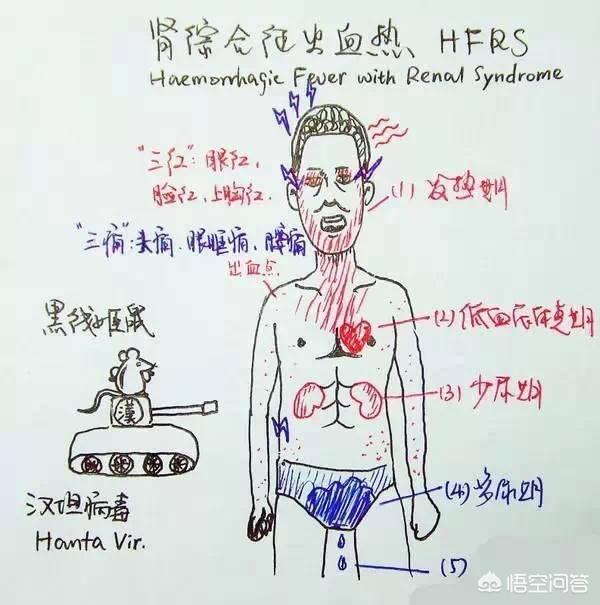 肾综合征出血热 HFRS
Haemorrhagic Fever with Renal Syndrome
"三红":眼红,
脸红,上胸红.
(1)发热期
"三痛":头痛.眼眶痛,腰痛
出血点
(2)低血压休克期
黑线姬鼠
漢
(3)少尿期
汉坦病毒
Hanta Vir.
(4)多尿期
(5)
悟空问答